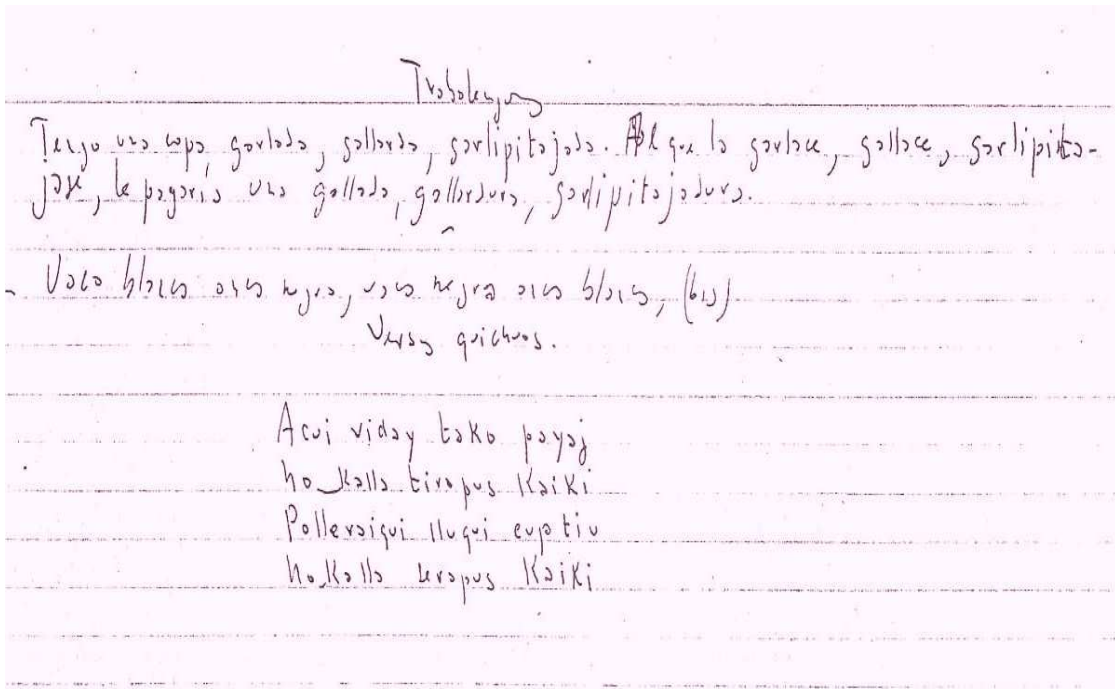 Trabalenguas
Tengo una copa, garlada, gallarda, garlipitajada. Al que la garlace, gallace, garlipita-
jase, le pagaría una gallada, galladura, garlipitajadura.
- Vaca blanca anca negra, vaca negra anca blanca, (bis)
Versos quichuas.
Acui viday tako payaj
nokalla tirapus Kaiki
Polleraiqui lluqui cuptiu
nokalla serapus Kaiki